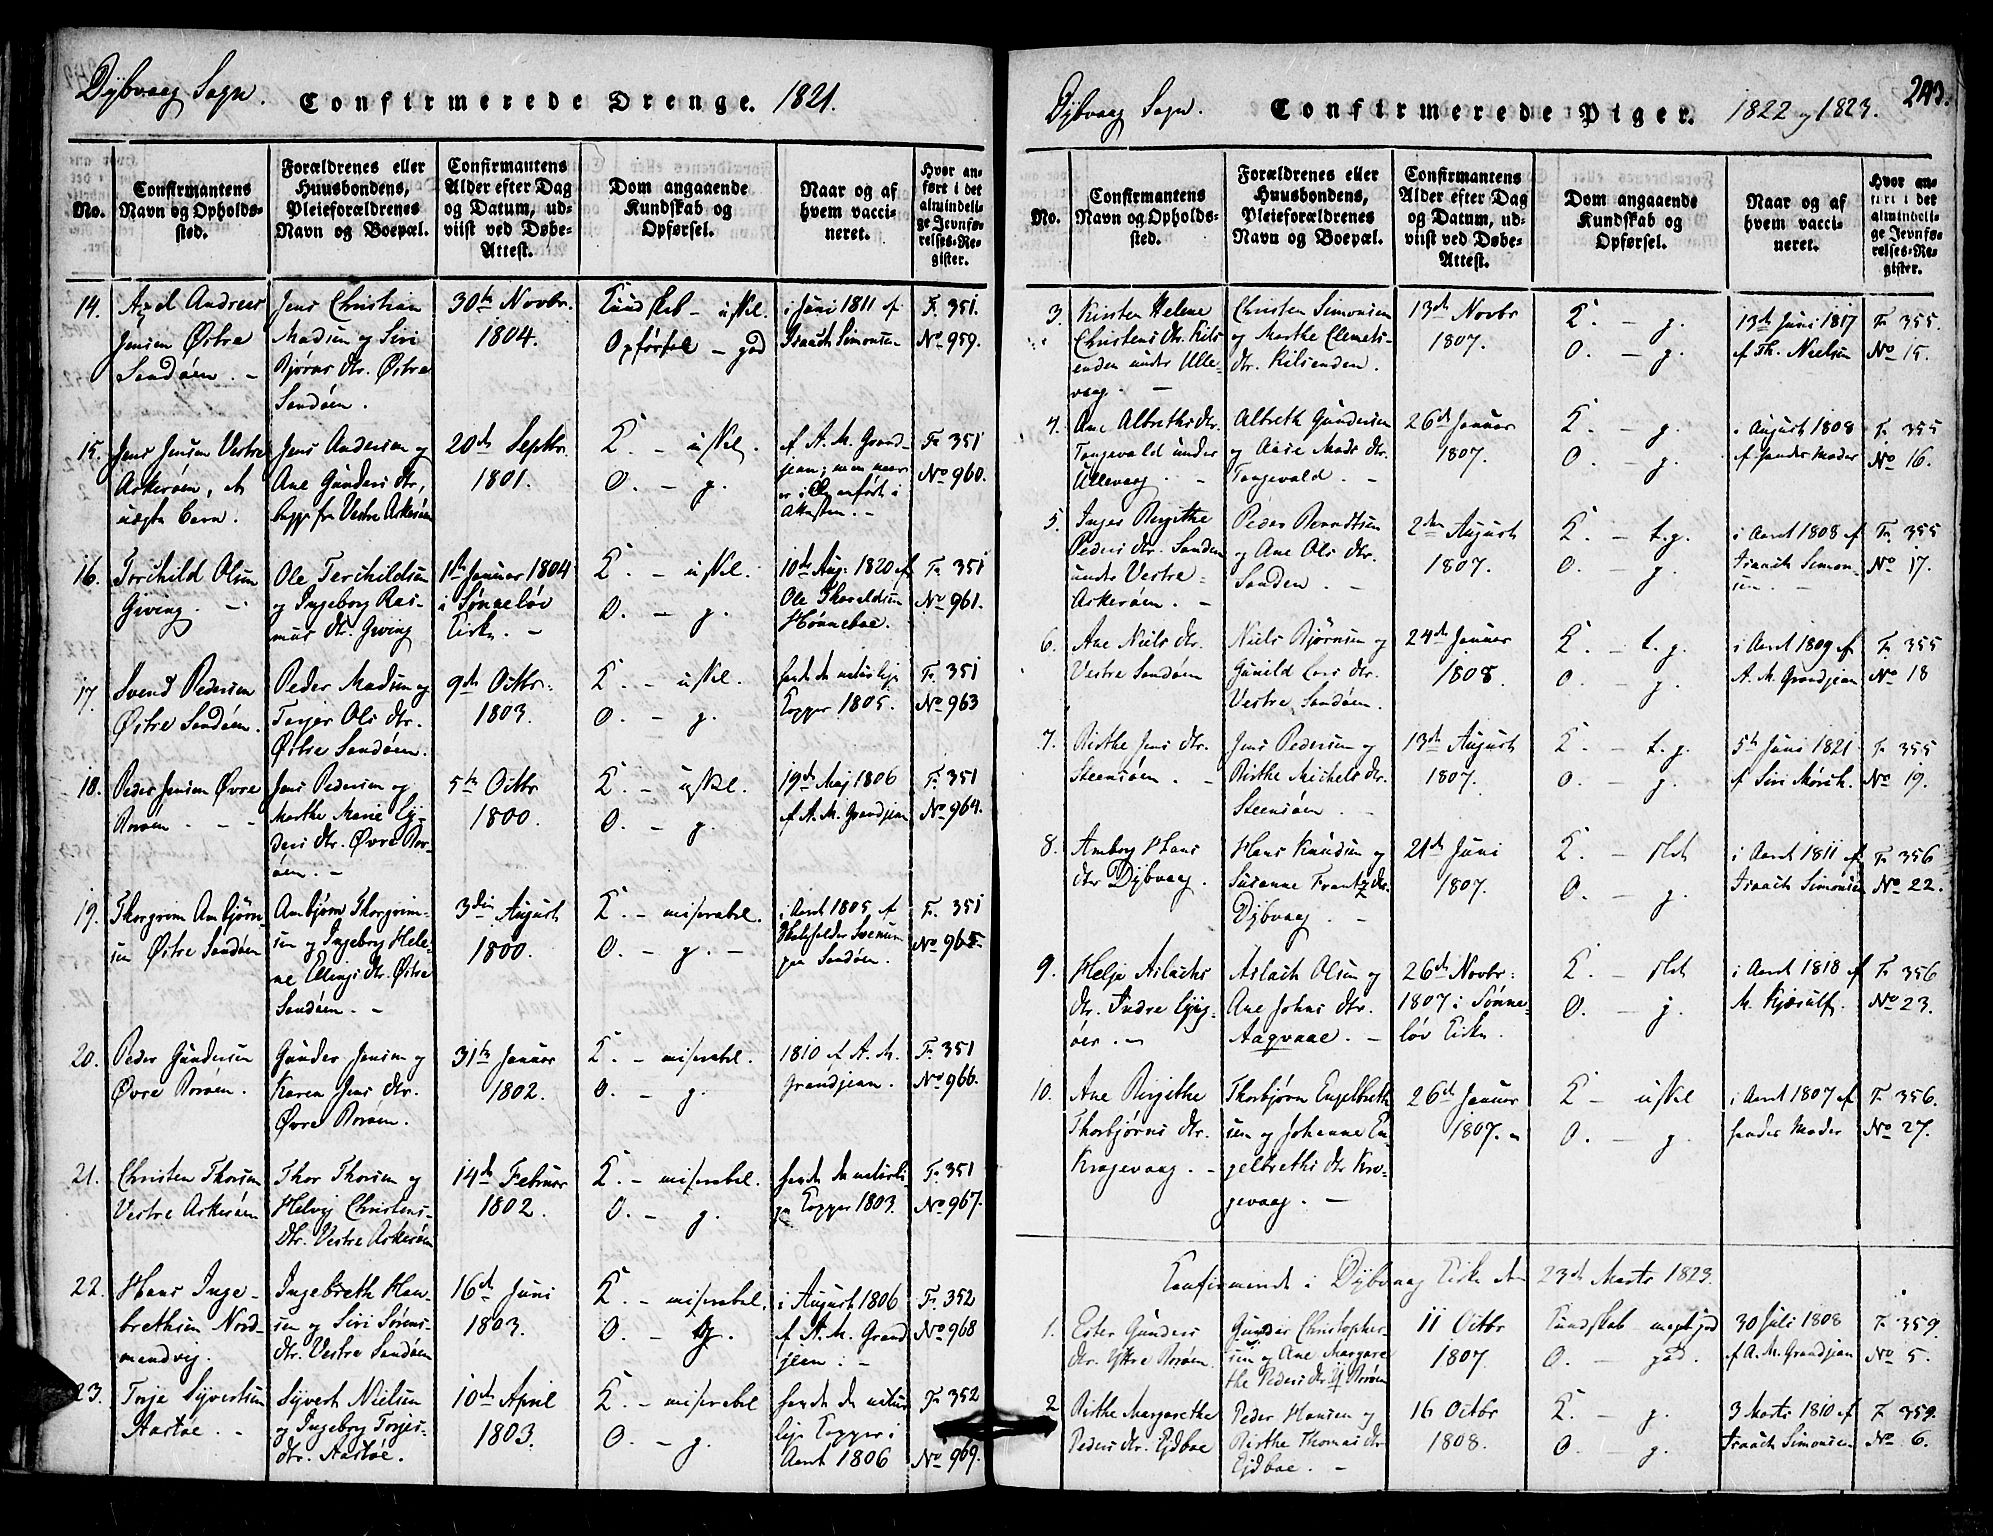 Dybvaag Sogn.
Confirmerede Drenge. 1821.
No.
Confirmantens
Navn og Opholds-
sted.
Forældrenes eller
Huusbondens,
Pleieforældrenes
Navn og Boepæl.
Confirmantens
Alder efter Dag
og Datum, ud-
viist ved Døbe-
Attest.
Dom angaaende
Kundskab og
Opførsel.
Naar og af
hvem vacci-
neret.
Hvor an-
ført i det
almindeli-
ge Jevnfø-
relses-Re-
gister.
14.
Axel Andreas
Jensen Østre
Sandøen. -
Jens Christian
Madsen og Siri
Bjørns dtr. Østre
Sandøen.
30te Novbr.
1804.
Kundskab - uskel.
Opførsel - god
i Juni 1811 af
Isaach Simonsen
F. 351.
No 959.
15.
Jens Jensen Vestre
Askerøen, et
uægte Barn.
Jens Andersen og
Ane Gunders dtr,
begge fra Vestre Askerøen
20de Septbr.
1801.
K. - uskel.
O. - g.
af A. M. Grand-
jean; men naar
er i Eg anført i
Attesten. -
Fr. 351
No 960.
16.
Terchild Olsen
Giving. -
Ole Terchildsen
og Ingeborg Ras-
mus dtr. Giving
1ste Januar 1804
i Sønneløv
Kirke. -
K. - uskel.
O. - g.
10de Aug: 1820 af
Ole Thoraldsen
Hønneboe.
Fr. 351
No 961.
17.
Svend Pedersen
Østre Sandøen.
Peder Madsen og
Torjer Ols dtr.
Østre Sandøen.
9de Octbr.
1803.
K. - uskel.
O. - g.
havde de naturlige
Kopper 1805.
Fr. 351
No 963
18.
Peder Jensen Øvre
Borøen. - -
Jens Pedersen og
Marthe Marie Ey-
ders dtr. Øvre Bor-
øen. -
5te Octbr
1800.
K. - uskel.
O. - g.
19de Maj 1806
af A. M. Grandjean
Fr. 351
No 964.
19.
Thorgrim Anbjørn-
sen Østre Sandøen
Anbjørn Thorgrim-
sen og Ingeborg Hele-
ne Ellings dtr. Østre
Sandøen. -
3die August
1800.
K. - miserabel.
O. - g. -
i Aaret 1805 af
Skoleholder Svensen
paa Sandøen.
Fr. 351
No 965.
20.
Peder Gundersen
Øvre Borøen.
Gunder Jensen og
Karen Jens dtr.
Øvre Borøen.
31te Januar
1802.
K. - miserabel.
O. - g.
1810 af A. M.
Grandjean.
Fr. 351
No 966.
21.
Christen Thorsen
Vestre Askerøen
Thor Thorsen og
Helvig Christens-
dtr. Vestre Askerøen
14de Februar
1802.
K. - miserabel.
O. - g.
havde de naturli-
ge Kopper 1803.
Fr. 351
No 967.
22.
Hans Inge-
brethsen Nord-
mandvig.
Ingebreth Han-
sen og Siri Sørens-
dtr. Vestre Sandøen
16de Juni
1803.
K. - miserabel.
O. - g.
i August 1806
af A. M. Grand
jean. -
Fr. 352
No 968
23.
Torje Syvertsen
Aastøe. -
Syvert Nielsen
og Ingeborg Torjes-
dtr. Aastøe.
10de April
1803.
K. - miserabel
O. - g.
havde de natur
lige Kopper i
Aaret 1806
Fr. 352
No 969.
Dybvaag Sogn.
Confirmerede Piger. 1822 og 1823.
243.
No.
Confirmantens
Navn og Opholds-
sted.
Forældrenes eller
Huusbondens,
Pleieforældrenes
Navn og Boepæl.
Confirmantens
Alder efter Dag
og Datum, ud-
viist ved Døbe-
Attest.
Dom angaaende
Kundskab og
Opførsel.
Naar og af
hvem vacci-
neret.
Hvor an-
ført i det
almindeli-
ge Jevnfø-
relses-Re-
gister.
3.
Kirsten Helene
Christens dtr. Kils-
enden under Ulle-
vaag. -
Christen Simonsen
og Marthe Clemets-
dtr. Kilsenden.
13de Novbr
1807.
K. - g.
O. - g.
13de Juni 1817
af Th. Nielsen
Fr. 355.
No 15.
4.
Ane Albreths dtr.
Tangevald under
Ullevaag. -
Albreth Gundersen
og Aase Mads dtr.
Tangevald. -
26de Januar
1807.
K. - g.
O. - g.
i August 1808
af Sander Mader
Fr. 355
No 16.
5.
Inger Birgithe
Peders dtr. Sanden
under Vestre-
Askerøen. -
Peder Berndtsen
og Ane Ols dtr.
Sanden. -
2den August
1807.
K. - t.g.
O. - g.
i Aaret 1808 af
Isaach Simon-
sen. -
Fr. 355
No 17.
6.
Ane Niels dtr.
Vestre Sandøen
Niels Bjørnsen og
Gunild Lars dtr.
Vestre Sandøen.
24de Januar
1808.
K. - t.g.
O. - g.
i Aaret 1809 af
A. M. Grandjean
Fr. 355
No 18
7.
Birthe Jens dtr.
Steensøen. -
Jens Pedersen og
Birthe Michels dtr.
Steensøen. -
13de August
1807.
K. - t.g.
O. - g.
5te Juni 1821
af Siri Mørch.
Fr. 355
No 19.
8.
Amborg Hans
dtr Dybvaag.
Hans Knudsen og
Susanne Frantz dtr.
Dybvaag. -
21de Juni
1807.
K. - slet
O. - g.
i Aaret 1811 af
Isaach Simonsen
Fr. 356
No 22.
9.
Helje Aslachs
dtr. Indre Gjeg-
øen. -
Aslach Olsen og
Ane Johns dtr.
Aaqvaae. -
26de Novbr:
1807 i Sønne-
løv Kirke.
K. - slet
O. - g.
i Aaret 1818 af
M. Kjærulf.
Fr. 356
No 23.
10.
Ane Birgithe
Thorbjørns dtr.
Krogevaag. -
Thorbjørn Engelbreth-
sen og Johanne En-
gelbreths dtr Kro-
gevaag. -
26de Januar
1807. -
K - uskel
O. - g.
i Aaret 1807 af
Sander Mader
Fr. 356.
No 27.
Confirmerede i Dybvaag Kirke den 23de Marts 1823.
1.
Ester Gunders
dtr. Ytre Borøen.
Gunder Christopher-
sen og Ane Margare
the Peders dtr Y Borøen
11 Octbr
1807.
Kundskab meget god
O. - god.
30 Juli 1808
af A. M. Grandjean
Fr. 359.
No 5.
2
Birthe Margarethe
Peders dtr. Ejdboe
Peder Hansen og
Birthe Thomas dtr
Ejdboe. -
16 Octbr
1808.
K. - g.
O. - g.
3 Marts 1810 af
Isaach Simonsen
F. 359.
No 6.